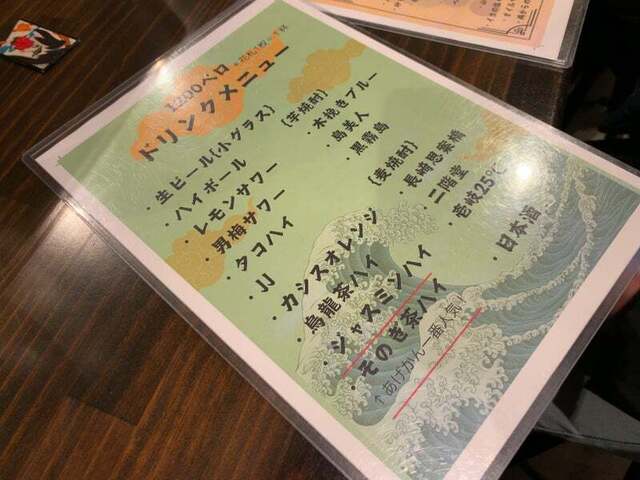 1200ベロ
ドリンクメニュー
・生ビール(小グラス)
・ハイボール
・レモンサワー
・男梅サワー
・タコハイ
・JJ
・カシスオレンジ
・烏龍茶ハイ
・ジャスミンハイ
・そのぎ茶ハイ
↑あげかん一番人気!
(芋焼酎)
・木挽きブルー
・島美人
・黒霧島
(麦焼酎)
・長崎思案橋
・二階堂
・壱岐25℃
・日本酒